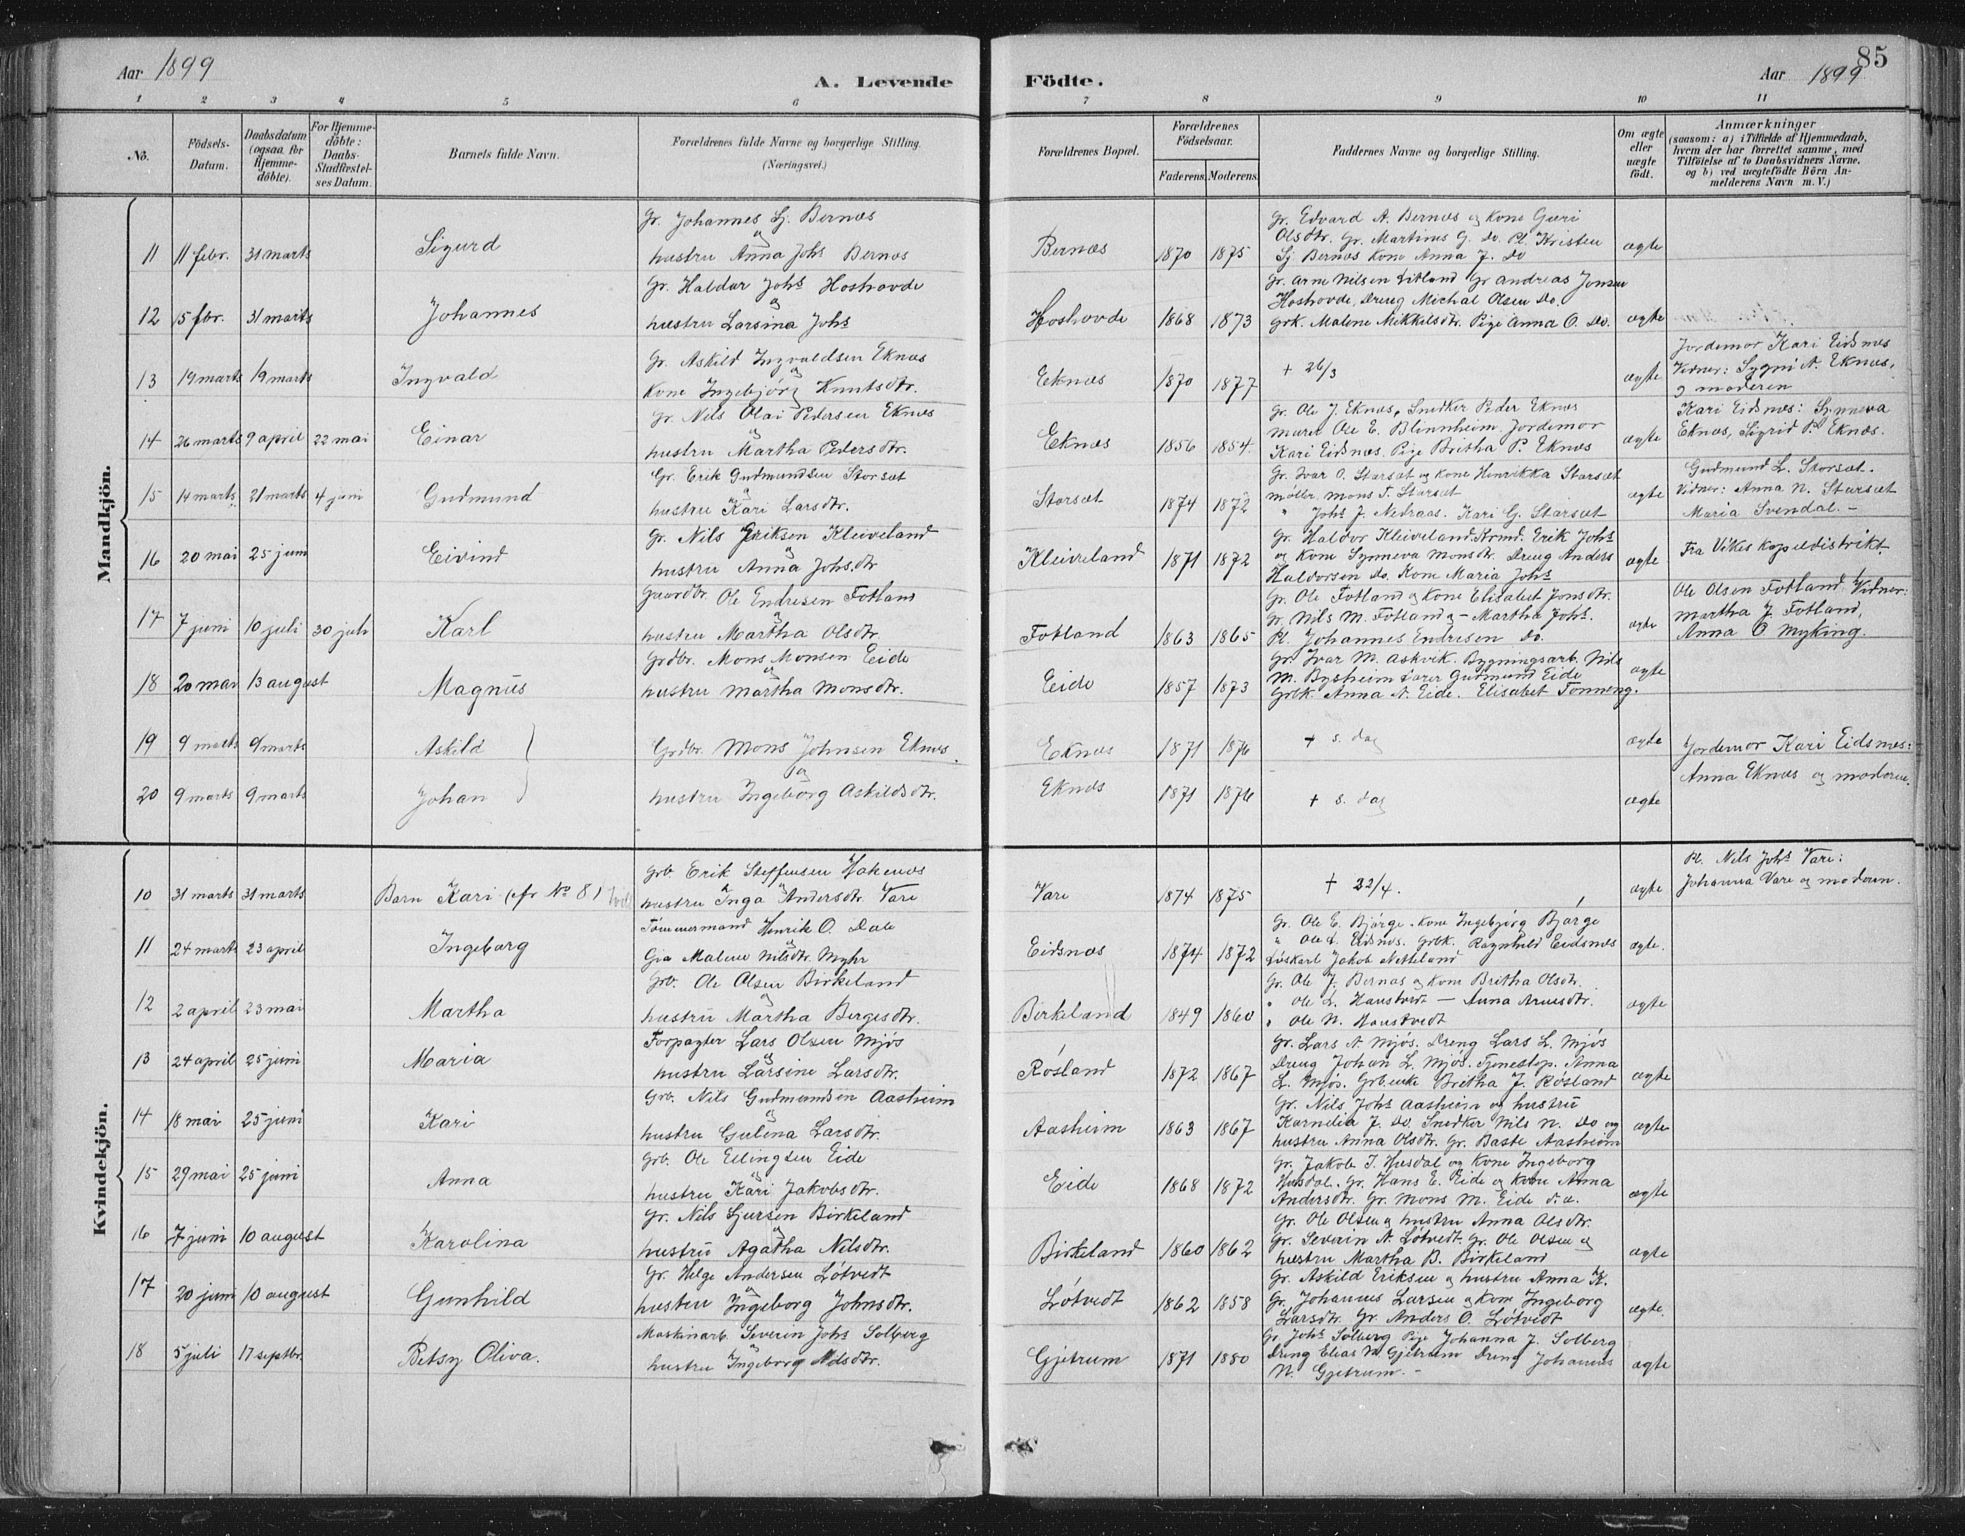 Aar 1899
A. Levende Födte.
Aar 1899
85
1 2 3 4 5 6 7 8 9 10 11
No.
Födsels-Datum.
Daabsdatum (ogsaa for Hjemme-döbte).
For Hjemme-döbte: Daabs-Stadfæstel-ses Datum.
Barnets fulde Navn.
Forældrenes fulde Navne og borgerlige Stilling. (Næringsvei.)
Forældrenes Bopæl.
Forældrenes Födselsaar.
Faderens. Moderens.
Faddernes Navne og borgerlige Stilling.
Om ægte eller uægte födt.
Anmærkninger
(saasom: a) i Tilfælde af Hjemmedaab,
hvem der har forrettet samme, med
Tilföielse af to Daabsvidners Navne.
og b) ved uægtefödte Börn An-
melderens Navn m. V.)
Mandkjön.
11 11 febr. 31 marts Sigurd
Gr. Johannes Sj. Bernæs
og
hustru Anna Johs Bernæs
Bernæs 1870 1875
Gr. Edvard A. Bernæs og Kone Guri
Olsdtr. Gr. Martinus G. Do. Pl. Kristen
Sj Bernæs Kone Anna J. Do
ægte
12 15 fbr. 31 marts Johannes
Gr. Haldor Johs Hoshovde
og
hustru Larsina Johs
Hoshovde 1868 1873
Gr. Arne Nilsen Litland Gr Andreas Jonsen
Hoshovde, Dreng Michal Olsen Do.
Grk. Malene Mikkilsdtr. Pige Anna O. Do.
ægte
13 19 marts 19 marts Ingvald
Gr. Askild Ingvaldsen Eknæs
og
Kone Ingebjörg Knutsdtr.
Eknæs 1870 1877
+ 26/3
ægte
Jordemor Kari Eidsnæs
Vidner: Sygni A. Eknæs,
og moderen
14 26 marts 9 april 22 mai Einar
Gr. Nils Olai Pedersen Eknæs
og
hustru Martha Pedersdtr.
Eknæs 1856 1854.
Gr. Ole J. Eknæs, Snedker Peder Eknæs
Murer Ole E. Blinnheim. Jordemor
Kari Eidsnæs. Pige Britha P. Eknæs
ægte
Kari Eidsnæs: Synneva
Eknæs, Sigrid P. Eknæs.
15 14 marts 21 marts 4 juni Gudmund
Gr. Erik Gudmundsen Storsæt
og
hustru Kari Larsdtr.
Storsæt 1874 1872
Gr. Ivar O. Storsæt og Kone Henrikka Storsæt
møller Mons T. Storsæt
" Johs J. Nedraas. Kari G. Storsæt
ægte
Gudmund L. Storsæt.
Vidner: Anna N. Storsæt
Maria Svendal. -
16 20 mai 25 juni Eivind
Gr. Nils Eriksen Kleiveland
og
hustru Anna Johs.dtr
Kleiveland 1871 1872
Gr. Haldor Kleiveland. Krmd. Erik Johs
og Kone Synneva Monsdtr. Dreng Anders
Haldorsen Do. Kone Maria Johs
ægte
Fra Vikes kapeldistrikt
17 7 juni 10 juli 30 juli Karl
Gaardbr. Ole Endresen Fotland
og
hustru Martha Olsdtr.
Fotland 1863 1865
Gr. Ole Fotland og Kone Elisabet Jonsdtr.
Gr. Nils M. Fotland og - Martha Johs.
Pl. Johannes Endresen Do.
ægte
Ole Olsen Fotland Vidner:
Martha J. Fotland,
Anna O Myking.
18 20 mai 13 august Magnus
Grdbr. Mons Monsen Eide
og
hustru Martha Monsdtr.
Eide 1857 1873
Gr. Ivar M. Askvik. Bygningsarb. Nils
M. Bysheim Lærer Gudmund Eide
Grbk. Anna N. Eide. Elisabet Tonneng.
ægte
19 9 marts 9 marts Askild
Grdbr. Mons Johnsen Eknæs.
og
Eknæs 1871 1876
+ s. dag
ægte
Jordemor Kari Eidsnæs:
Anna Eknæs og moderen.
20 9 marts 9 marts Johan
hustru Ingeborg Askildsdtr.
Eknæs 1871 1876
+ s. dag
ægte
Kvindekjön.
10 31 marts 31 marts Barn Kari (cfr No 8)
Grb. Erik Steffensen Hakenæs
og
hustru Inga Andersdtr. Vare
Vare 1874 1875
+ 22/4.
ægte
Pl. Nils Johs Vare:
Johanna Vare og moderen.
11 24 marts 23 april Ingeborg
Tömmermand Henrik O. Dale
og
Gia Malene Nilsdtr. Myhr
Eidsnæs 1874 1872
Gr. Ole E. Bjørge. Kone Ingebjörg Bjørge
" Ole L. Eidsnæs. Grbk. Ragnhild Eidsnæs
Løskarl Jakob Netteland
ægte.
12 2 april 23 mai Martha
Grb. Ole Olsen Birkeland
og
hustru Martha Børgesdtr.
Birkeland 1849 1860
Gr. Ole J. Bernæs og Kone Britha Olsdtr.
" Ole L. Haustvedt - Anna Arnesdtr.
" Ole N. Haustvedt
ægte
13 24 april 25 juni Maria
Forpagter Lars Olsen Mjøs
og
hustru Larsine Larsdtr.
Røsland 1872 1867
Gr. Lars N. Mjøs. Dreng Lars L. Mjøs
Dreng Johan L. Mjøs. Tjenestep. Anna
L. Mjøs. Grbenke Britha J. Røsland
ægte
14 18 mai 25 juni Kari
Grb. Nils Gudmundsen Aasheim
og
hustru Gulina Larsdtr.
Aasheim 1863 1867
Gr. Nils Johs Aasheim og hustru
Karnelia J. Do. Snedker Nils N. Do og
hustru Anna Olsdtr. Gr. Baste Aasheim
ægte
15 29 mai 25 juni Anna
Grb. Ole Ellingsen Eide
og
hustru Kari Jakobsdtr.
Eide 1868 1872
Gr. Jakob I. Husdal og Kone Ingeborg
Husdal. Gr. Hans E. Eide og Kone Anna
Andersdtr. Gr. Mons M. Eide d.a.
ægte
16 7 juni 10 august Karolina
Gr. Nils Sjursen Birkeland
og
hustru Agatha Nilsdtr.
Birkeland 1860 1862
Gr. Ole Olsen og hustru Anna Olsdtr.
Gr. Severin A. Løtvedt. Gr. Ole Olsen og
hustru Martha B. Birkeland
ægte
17 20 juni 10 august Gunhild
Gr. Helge Andersen Løtvedt
og
hustru Ingeborg Johnsdtr.
Løtvedt 1862 1858
Gr. Askild Eriksen og hustru Anna K.
Gr. Johannes Larsen og Kone Ingeborg
Larsdtr. Gr. Anders O. Løtvedt
ægte.
18 5 juli 17 septbr. Betsy Oliva.
Maskinarb. Severin Johs Solberg
og
hustru Ingeborg Nilsdtr.
Gjetrum 1871 1880
Gr Johs Solberg Pige Johanna J. Solberg
Dreng Elias N Gjetrum Dreng Johannes
N. Gjetrum. -
ægte